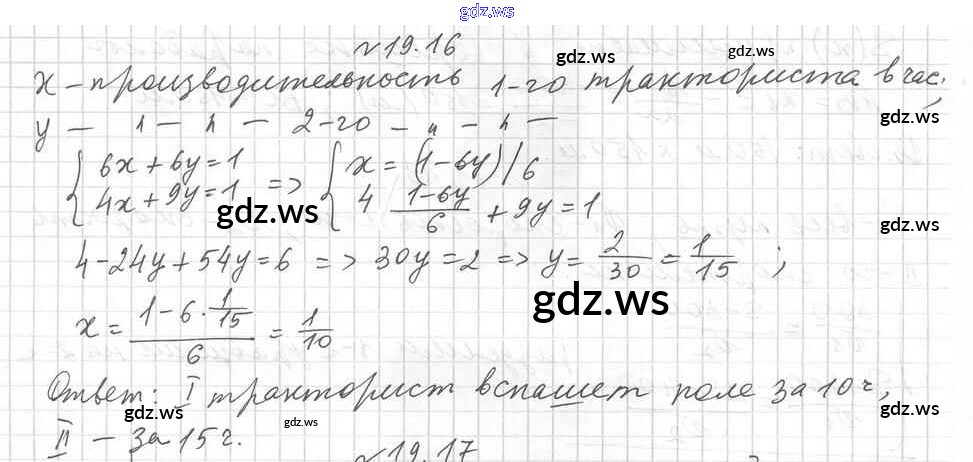 gdz.ws
№ 19.16
x – производительность 1-го тракториста в час,
gdz.ws
gdz.ws
y — 〃 — 〃 — 2-го — 〃 — 〃 —
{ 6x + 6y = 1 => { x = (1-6y)/6
{ 4x + 9y = 1 { 4 (1-6y)/6 + 9y = 1
gdz.ws
gdz.ws
4 - 24y + 54y = 6 => 30y = 2 => y = 2/30 = 1/15 ;
gdz.ws
x = (1 - 6 · 1/15)/6 = 1/10
Ответ: I тракторист вспашет поле за 10 ч,
gdz.ws
gdz.ws
gdz.ws
II – за 15 ч.
№ 19.17